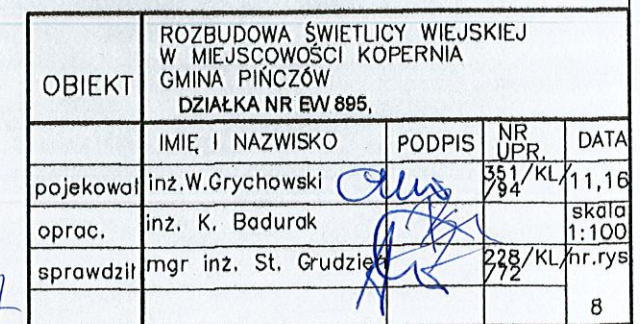 OBIEKT
ROZBUDOWA ŚWIETLICY WIEJSKIEJ
W MIEJSCOWOŚCI KOPERNIA
GMINA PIŃCZÓW
DZIAŁKA NR EW 895,
IMIĘ I NAZWISKO PODPIS NR UPR. DATA
pojekował inż.W.Grychowski 351/KL/94 11,16
oprac. inż. K. Badurak skala 1:100
sprawdził mgr inż. St. Grudzień 228/KL/72 nr.rys
8